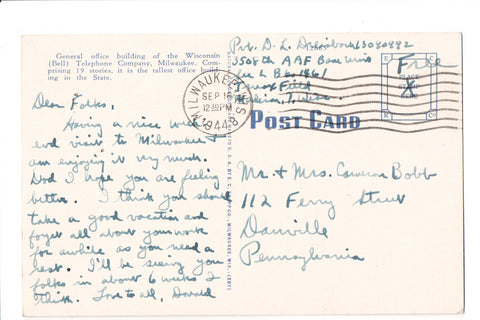 General office building of the Wisconsin
(Bell) Telephone Company, Milwaukee. Com-
prising 19 stories, it is the tallest office build-
ing in the State.
Dear Folks,
Having a nice week
end visit to Milwaukee &
am enjoying it very much.
Dad I hope you are feeling
better. I think you should
take a good vacation and
forget all about your work
for awhile as you need a
rest. I'll be seeing you
folks in about 6 weeks I
think. Love to all, Donald
MILWAUKEE
WIS.
SEP 18
12 PM
1944
Pvt. D. L. 13080892
3508th AAF Base Unit
Field
Madison, Wisc.
Free
PLACE
STAMP
HERE
POST CARD
Mr. & Mrs. Cameron Bobb
112 Ferry Street
Danville
Pennsylvania